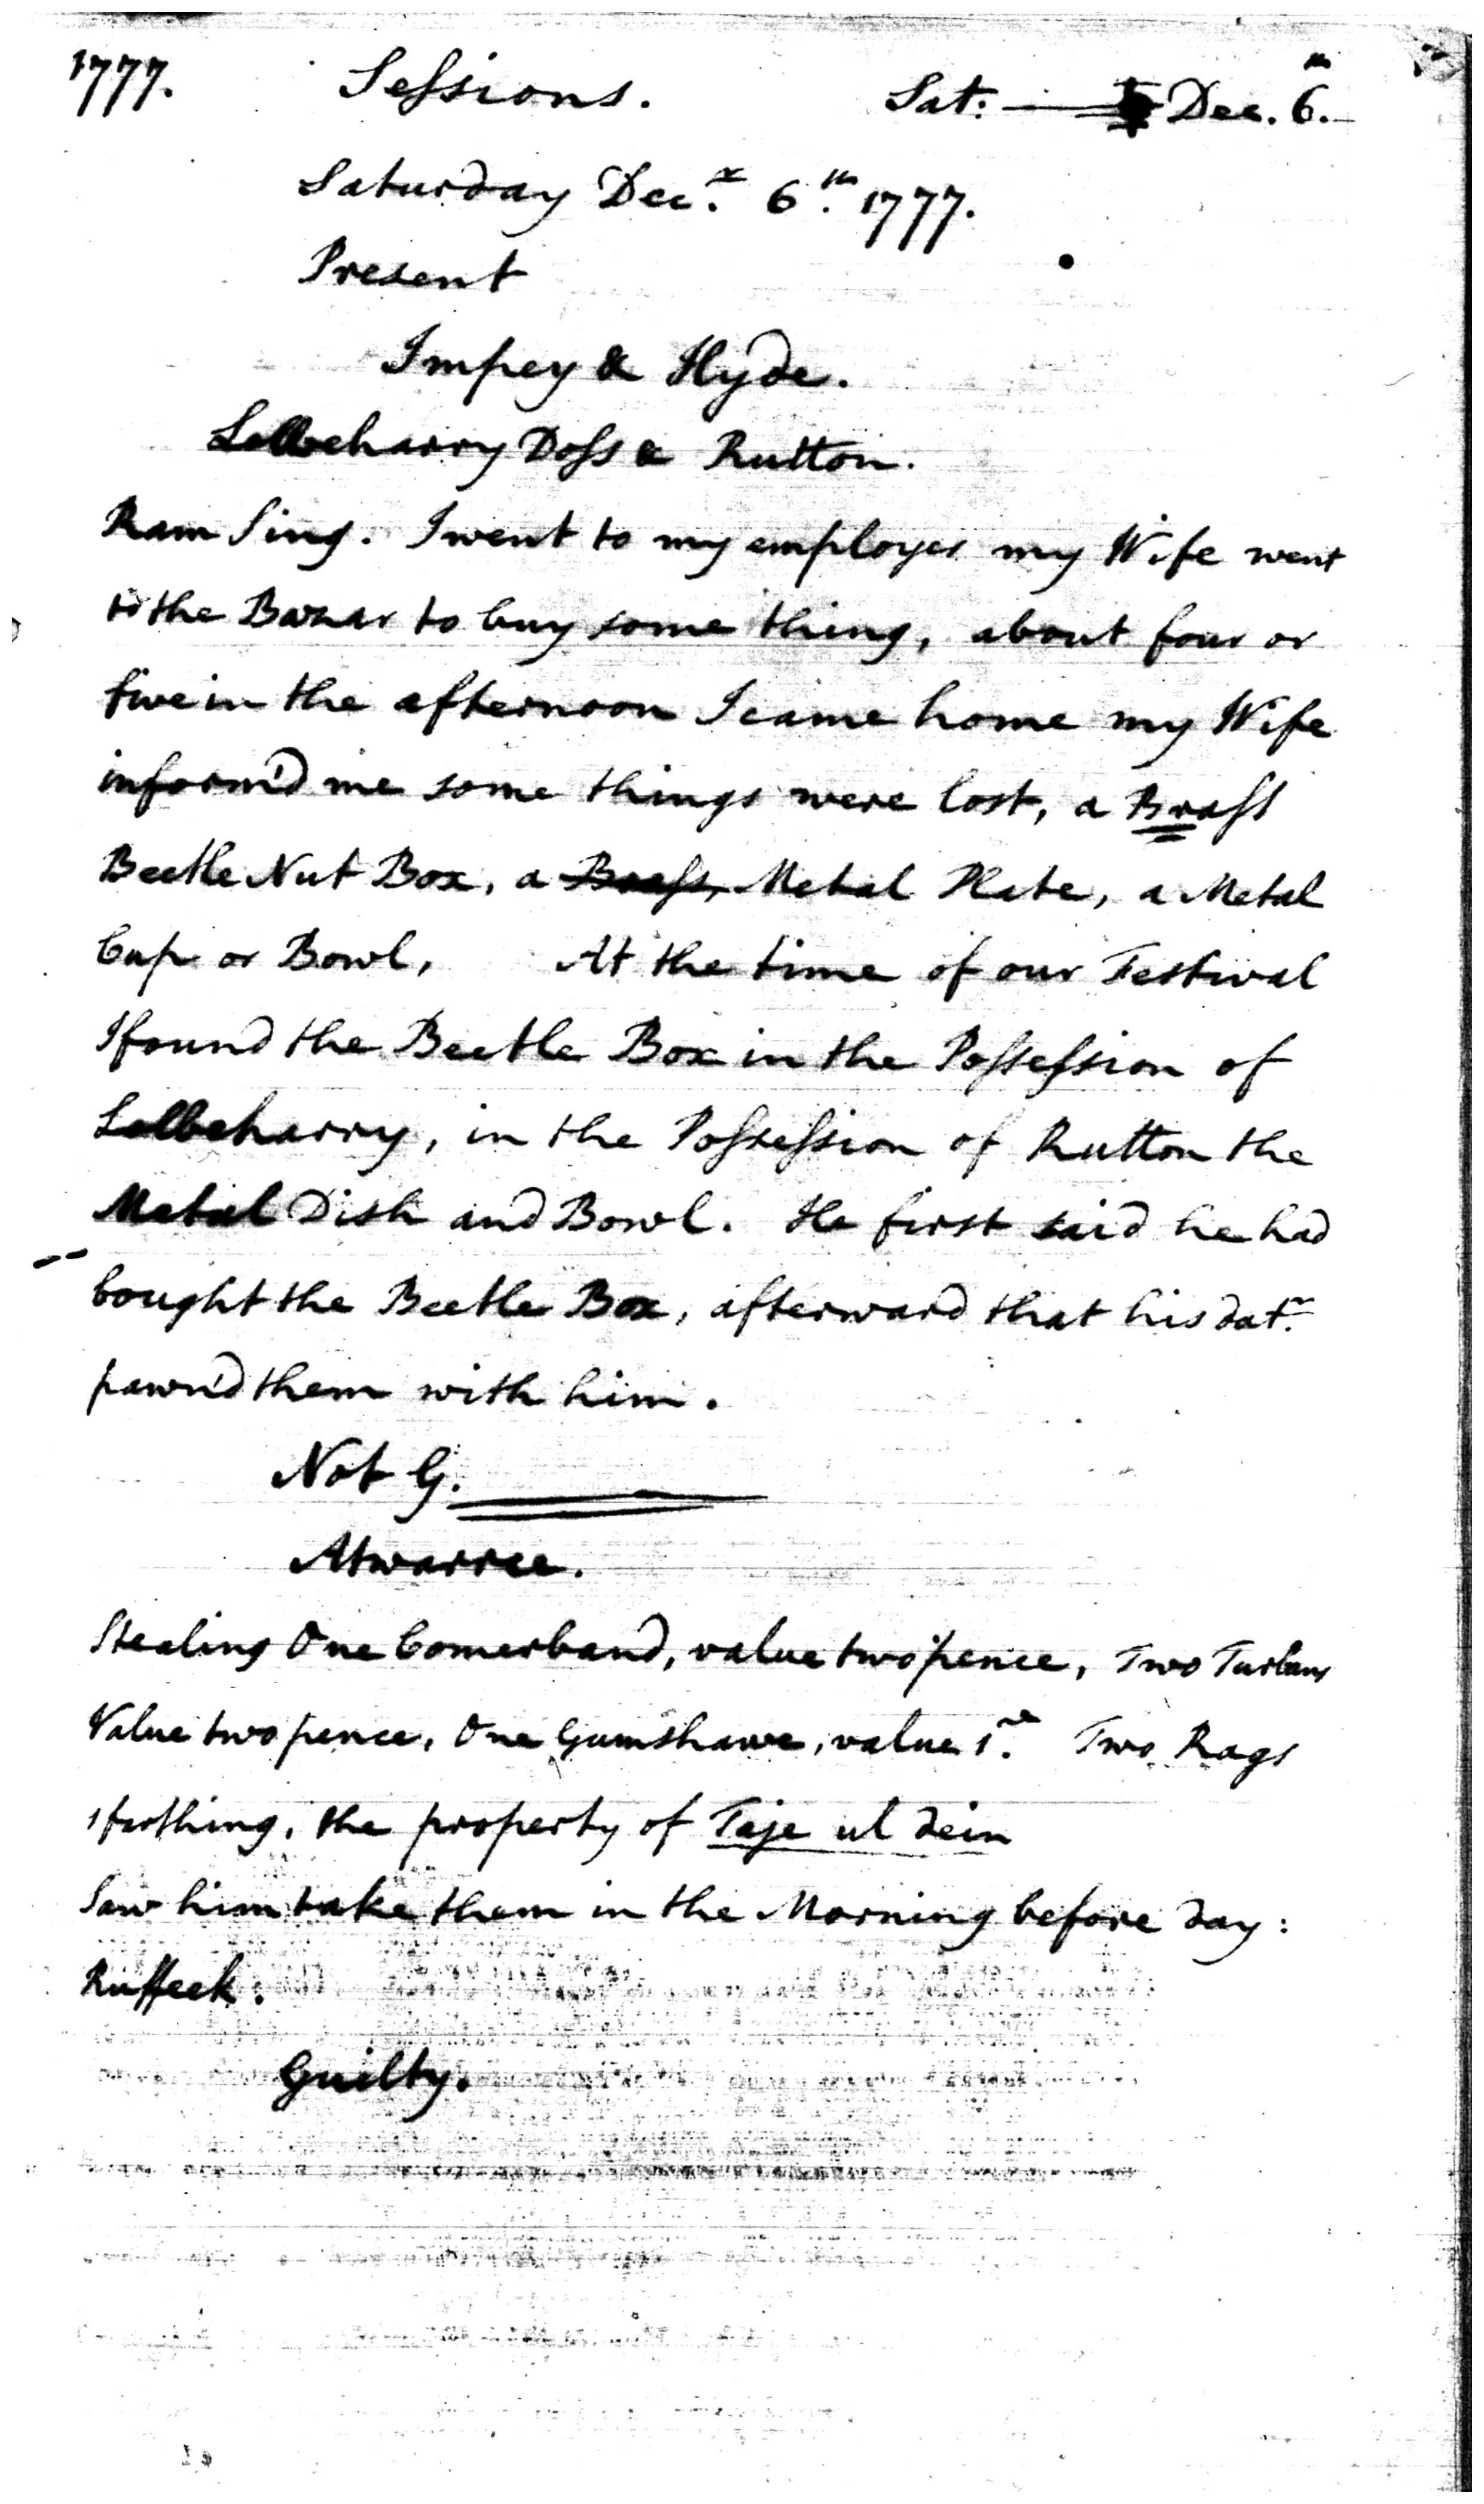 1777. Sessions. Sat: Dec. 6.th
Saturday Dec.r 6.th 1777.
Present
Impey & Hyde.
Lollbeharry Doss & Rutton.
Ram Sing. I went to my employer my Wife went
to the Bazar to buy some thing, about four or
five in the afternoon I came home my Wife
inform'd me some things were lost, a Brass
Beetle Nut Box, a Brass, Metal Plate, a Metal
Cup or Bowl, At the time of our Festival
I found the Beetle Box in the Possession of
Lollbeharry, in the Possession of Rutton the
Metal Dish and Bowl. He first said he had
bought the Beetle Box, afterward that his dat.r
pawn'd them with him.
Not G.
Atwarree.
Stealing One Comerband, value two pence, Two Turbans
Value two pence, One Gumshawe, value 1. Two Rags
1 farthing, the property of Taje ul dein
Saw him take them in the Morning before day:
Ruffeek.
Guilty.